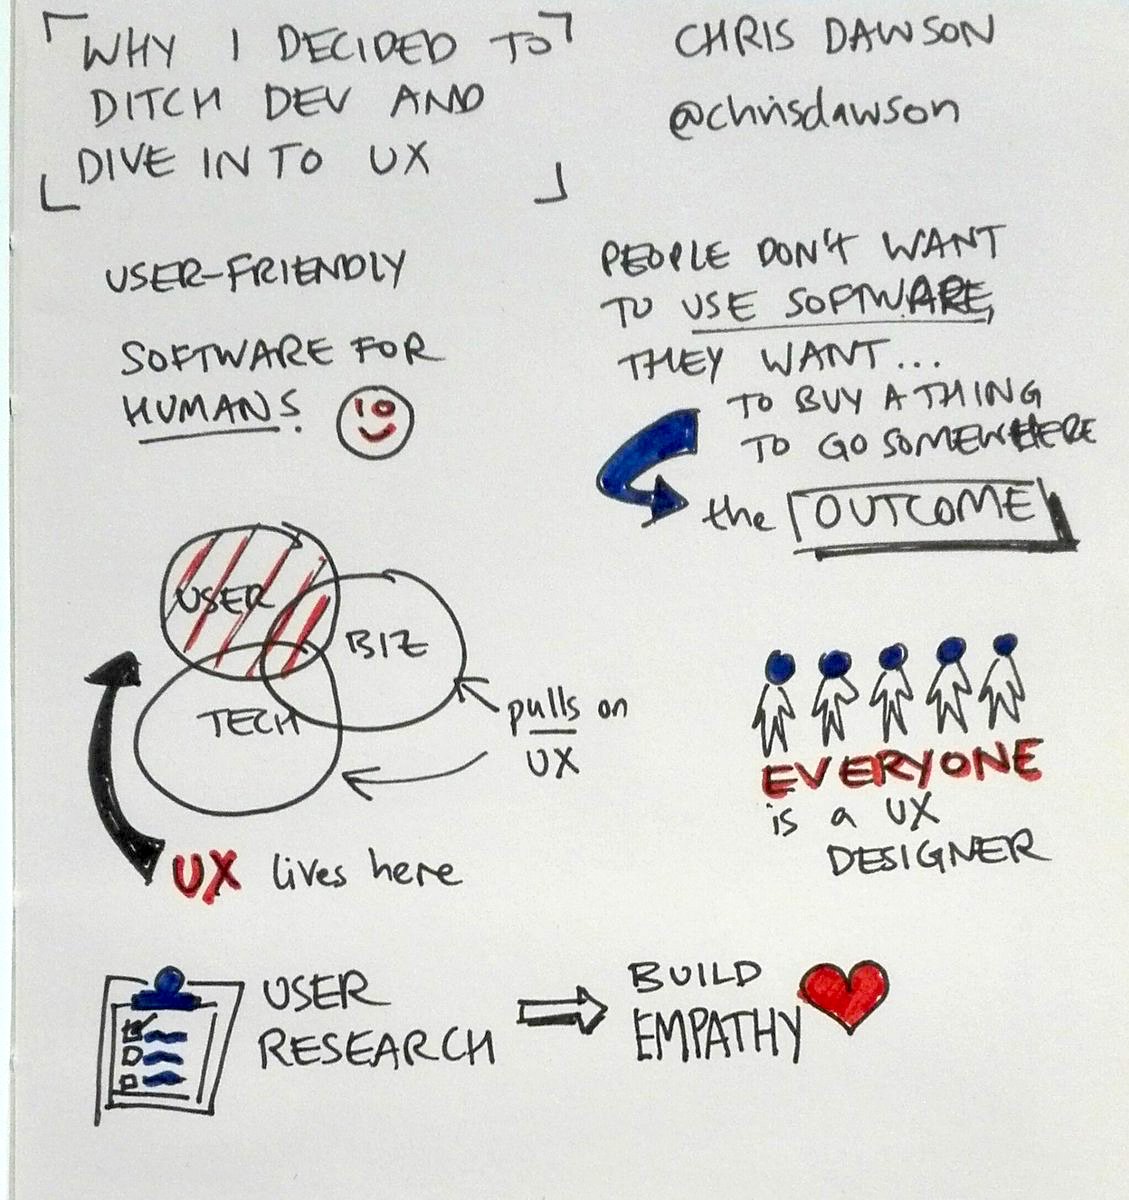 WHY I DECIDED TO
DITCH DEV AND
DIVE IN TO UX
CHRIS DAWSON
@chrisdawson
USER-FRIENDLY
SOFTWARE FOR
HUMANS.
PEOPLE DON'T WANT
TO USE SOFTWARE,
THEY WANT...
TO BUY A THING
TO GO SOMEWHERE
the OUTCOME
USER
BIZ
TECH
pulls on
UX
UX lives here
EVERYONE
is a UX
DESIGNER
USER
RESEARCH
BUILD
EMPATHY